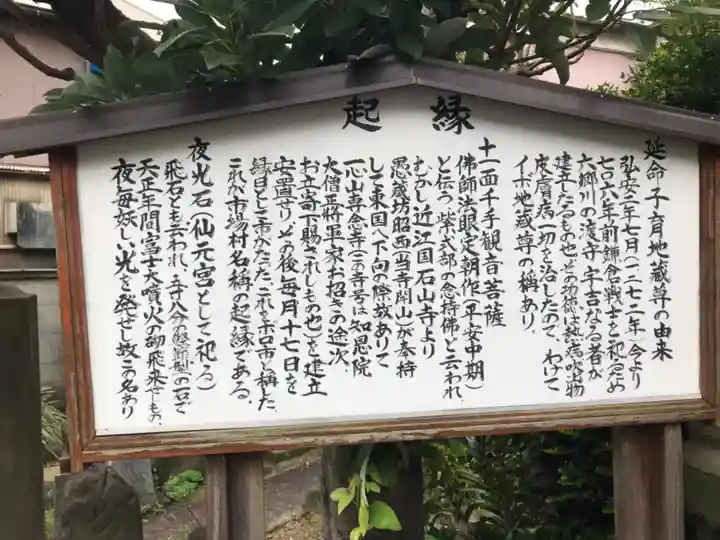 縁起
延命子育地蔵尊の由来
弘安二年七月(一二七二年)今より
七〇六年前鎌倉戦士を祀るため
六郷川の渡守 宇吉なる者が
建立したるもの也 その功徳は熱病吹出物
皮膚病一切を治したので、わけて
イボ地蔵尊の称あり、
十一面千手観音菩薩
佛師法眼定朝作(平安中期)
と伝う 紫式部の念持佛と云われ、
むかし近江国石山寺より
愚蔵坊昭西(当寺開山)が奉持
して東国へ下向の際故ありて
一心山専念寺(この寺号は知恩院
大僧正將平家お招きの途次、
お立寄下賜これしもの也)を建立
安置せり、その後毎月十七日を
縁日として市がたったこれをボロ市と称した、
これが市場村名称の起縁である。
夜光石(仙元宮として祀る)
飛石とも云われ、
の石で
天正年間富士大噴火の砌飛来せしもの、
夜毎妖しい光を発せし故この名あり